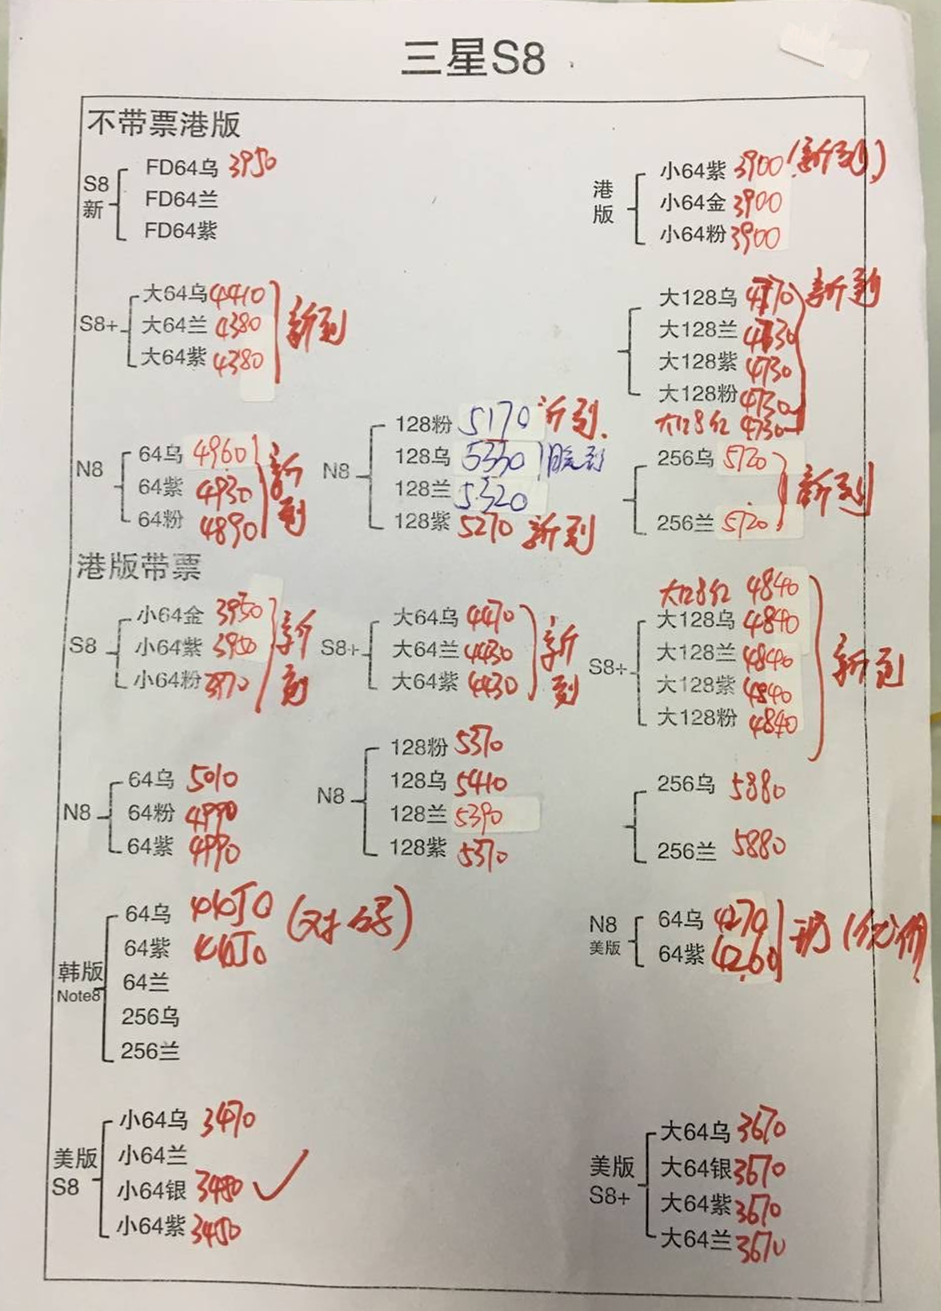 三星S8
不带票港版
S8
新
FD64乌 3950
FD64兰
FD64紫
港
版
小64紫 3900 (新到)
小64金 3900
小64粉 3900
S8+
大64乌 4410
大64兰 4380
大64紫 4380
新到
大128乌 4770
大128兰 4730
大128紫 4730
大128粉 4730
大128红 4730
新到
N8
64乌 4960
64紫 4930
64粉 4890
新
到
N8
128粉 5170 新到
128乌 5330
128兰 5320
128紫 5270 新到
256乌 5720
256兰 5720
新到
港版带票
S8
小64金 3950
小64紫 3950
小64粉 3970
新
到
S8+
大64乌 4470
大64兰 4430
大64紫 4430
新
到
S8+
大128红 4840
大128乌 4840
大128兰 4840
大128紫 4840
大128粉 4840
新到
N8
64乌 5010
64粉 4990
64紫 4990
N8
128粉 5370
128乌 5410
128兰 5390
128紫 5370
256乌 5880
256兰 5880
韩版
Note8
64乌
64紫
64兰
256乌
256兰
(对码)
N8
美版
64乌 4270
64紫 4260
美版
S8
小64乌 3470
小64兰
小64银 3450
小64紫 3450
美版
S8+
大64乌 3670
大64银 3670
大64紫 3670
大64兰 3670